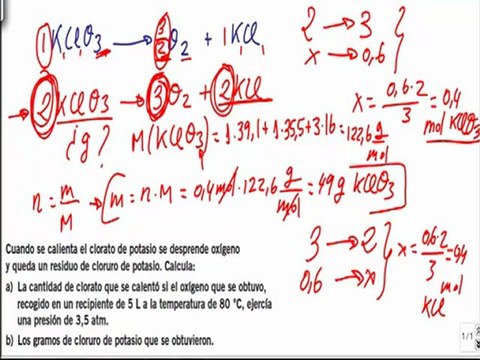 1KClO₃ → 3/2 O₂ + 1KCl
2 → 3
x → 0,6
→ 2KClO₃ → 3O₂ + 2KCl
x = 0,6·2/3 = 0,4 mol KClO₃
¿g?
M(KClO₃) = 1·39,1 + 1·35,5 + 3·16 = 122,6 g/mol
n = m/M → m = n·M = 0,4 mol · 122,6 g/mol = 49g KClO₃
3 → 2
0,6 → x
x = 0,6·2/3 = 0,4 mol KCl
Cuando se calienta el clorato de potasio se desprende oxígeno
y queda un residuo de cloruro de potasio. Calcula:
a) La cantidad de clorato que se calentó si el oxígeno que se obtuvo,
recogido en un recipiente de 5 L a la temperatura de 80 °C, ejercía
una presión de 3,5 atm.
b) Los gramos de cloruro de potasio que se obtuvieron.
1/1